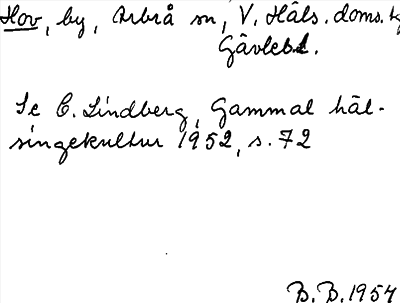 Hov, by, Arbrå sn, V. Häls. doms.
Gävlebl.
Se C. Lindberg, Gammal häl-
singekultur 1952, s. 72
B. B. 1954